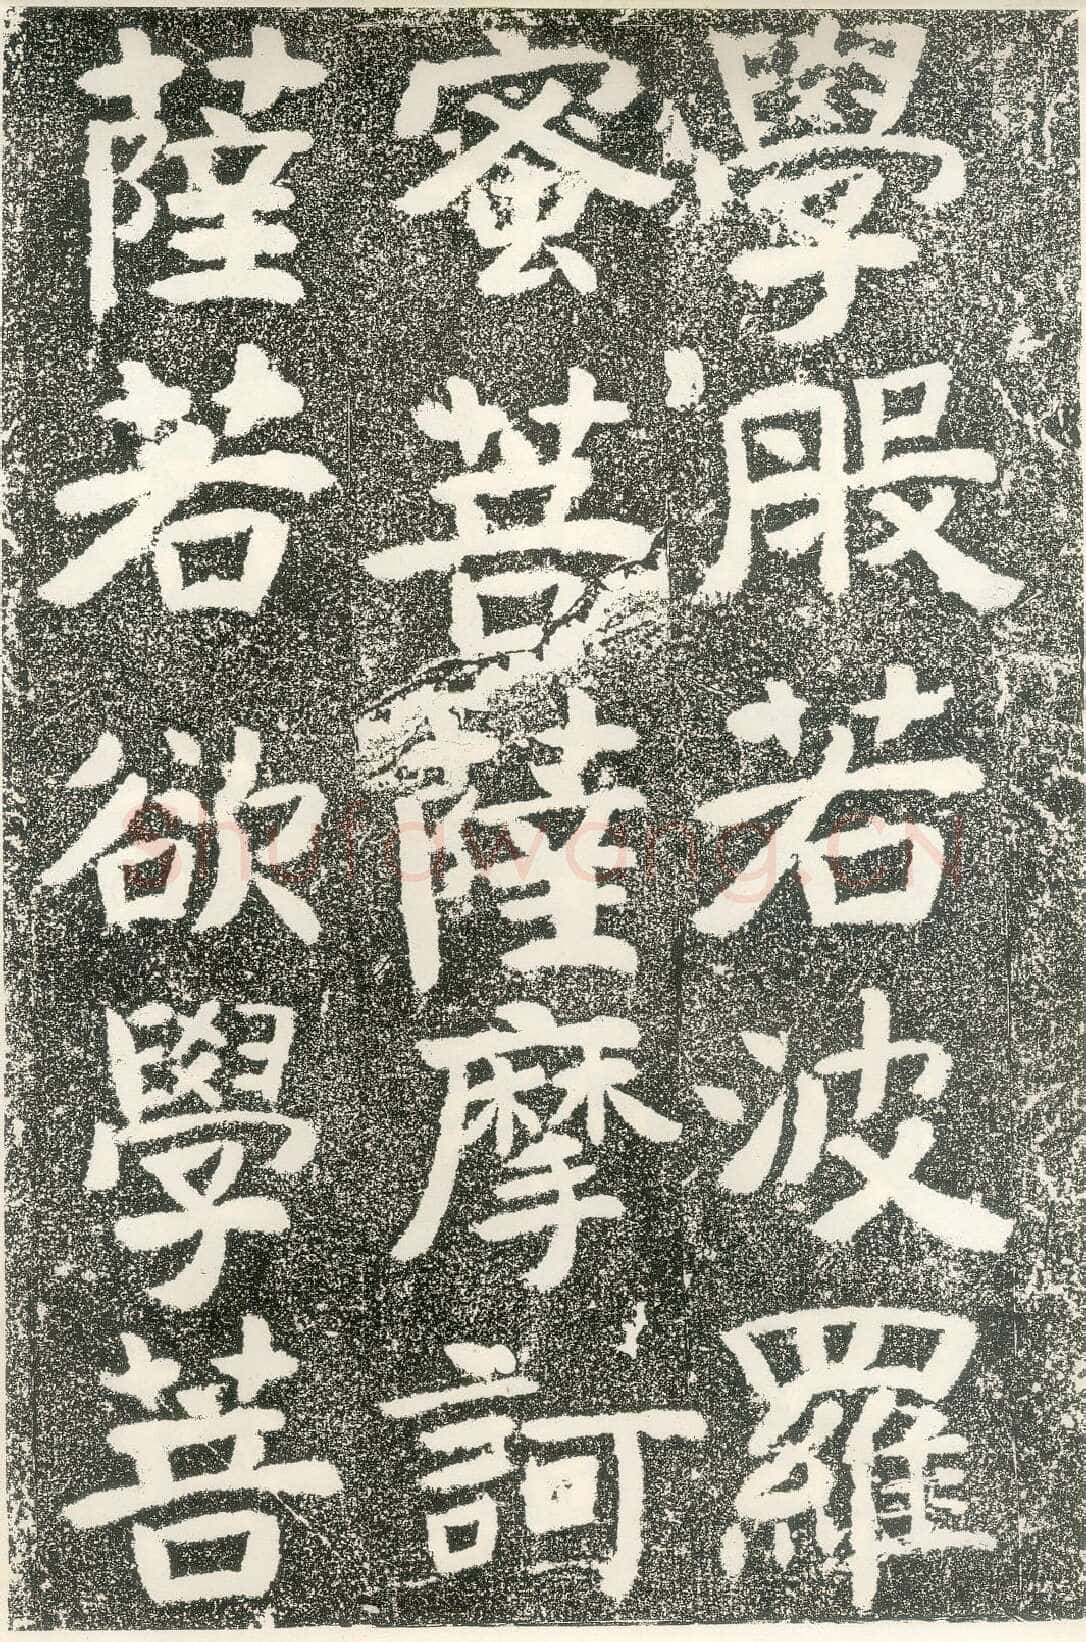 學般若波羅
蜜菩薩摩訶
薩若欲學菩
Shufawang.CN